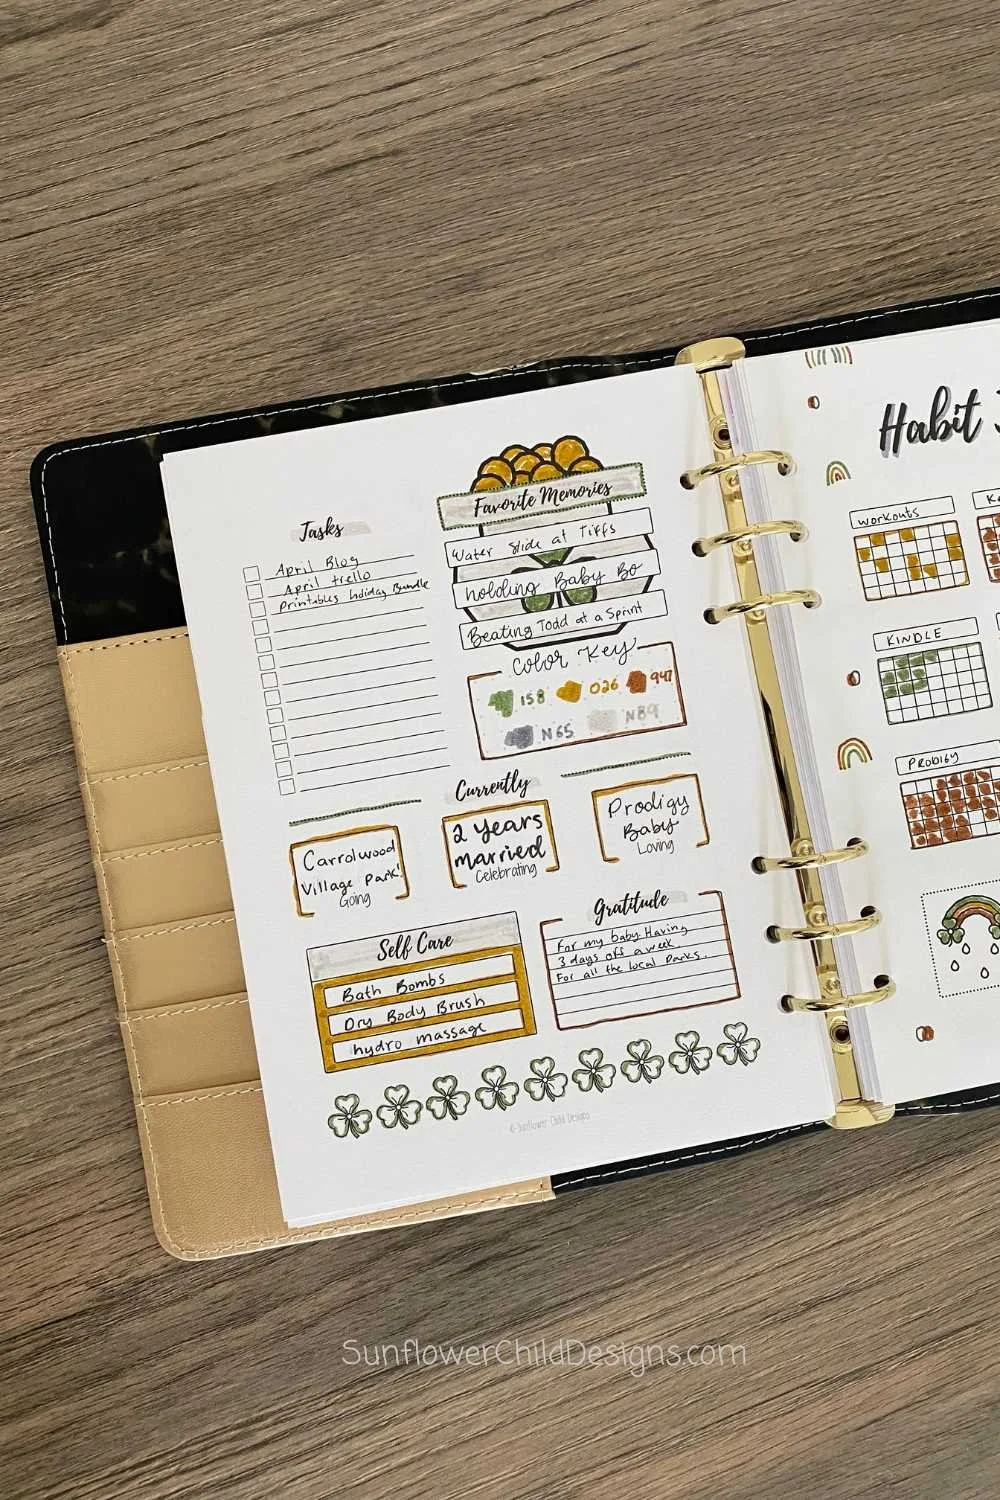 Tasks
April Blog
April trello
Printables holiday Bundle
Favorite Memories
Water Slide at Tiffs
holding Baby Bo
Beating Todd at a Sprint
Color Key
158 026 947
N65 N89
Currently
Carrolwood
Village Park!
Going
2 years
married
Celebrating
Prodigy
Baby
Loving
Self Care
Bath Bombs
Dry Body Brush
hydro massage
Gratitude
For my baby. Having
3 days off a week.
For all the local Parks.
© Sunflower Child Designs
Habit
workouts
KINDLE
PRODIGY
SunflowerChildDesigns.com